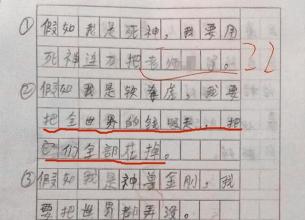 ① 假如我是死神，我要用
死神连刀把老师 没。
② 假如我是 虚，我要
把全世界的 吸走，把
它们全部花掉。
③ 假如我是神兽金刚，我
要把世界都弄没。
32